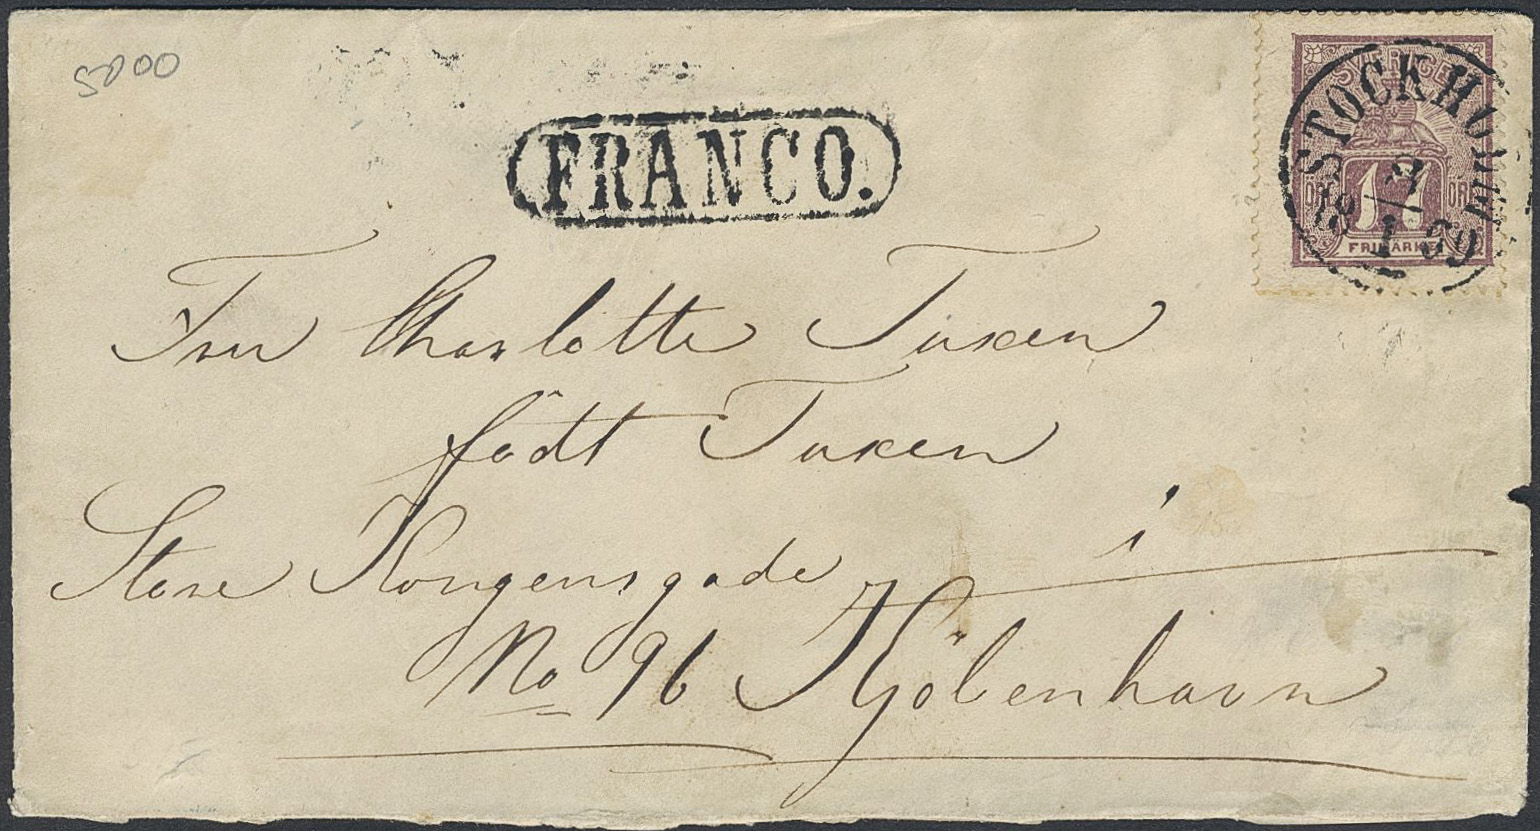 5000
FRANCO.
SVERIGE
STOCKHOLM
18 1 69
17
ÖRE
FRIMÄRKE
Fru Charlotte Tuxen
födt Tuxen
Store Kongensgade i
No 96 Kjöbenhavn